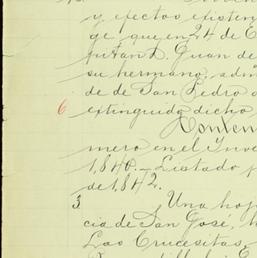 y efectos existen
ge que en 24 de E
Juan de
su hermano, adm
de de San Pedro a
6 extinguido dicho
Conten
mero en el Inve
1,840. — Listado p
de 1,842.
3 Una hoj
cia de San José, h
Las Crucesitas,